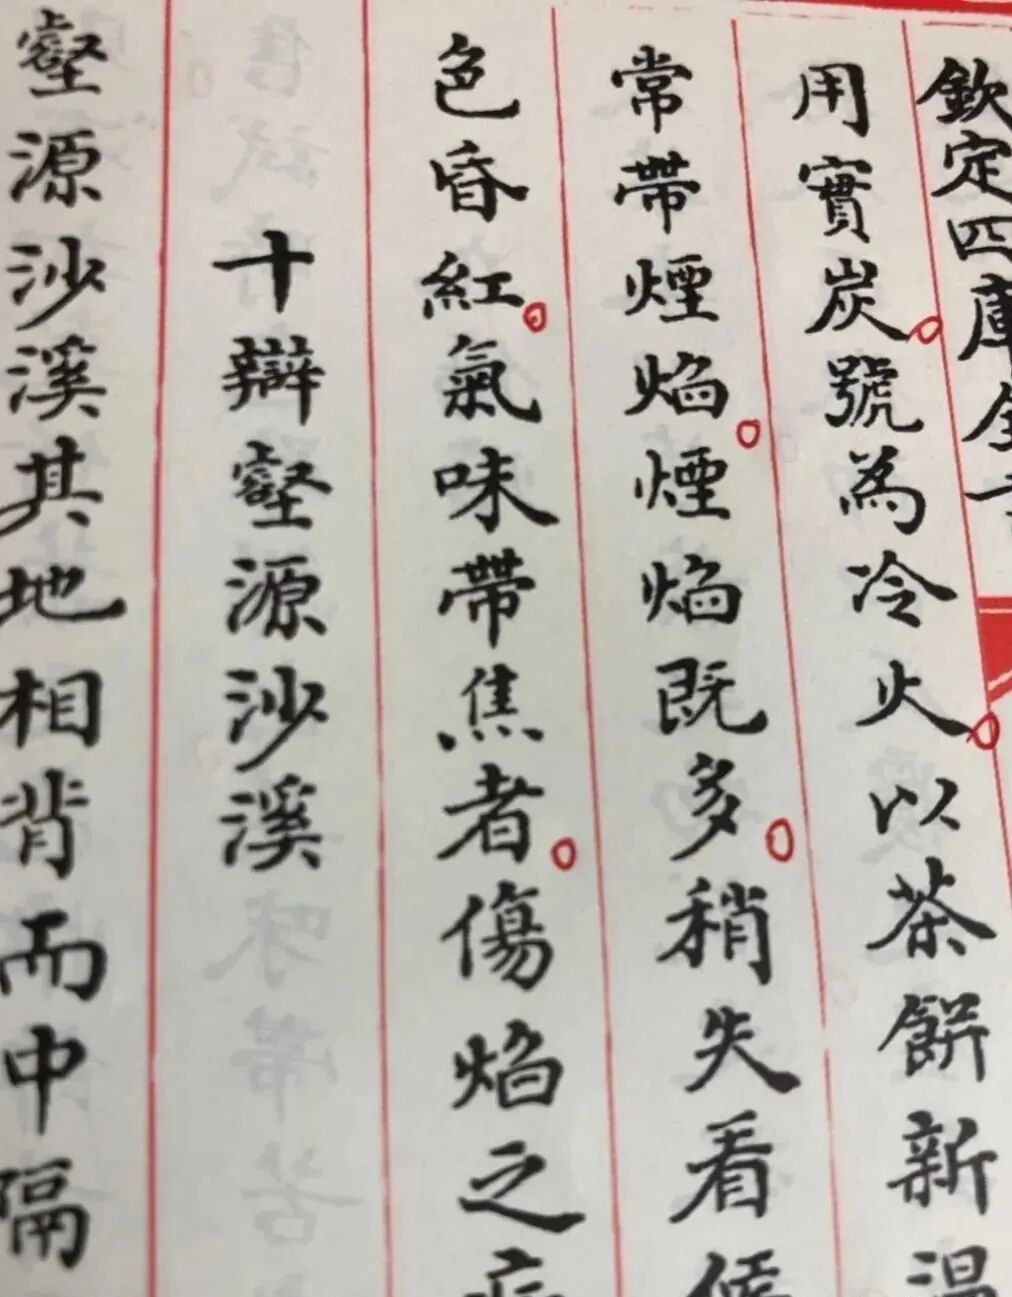 欽定四庫全
用實炭。號為冷火。以茶餅新温
常帶煙焰。煙焰既多。稍失看候
色昏紅。氣味帶焦者。傷焰之病
十辯壑源沙溪
壑源沙溪其地相背而中隔